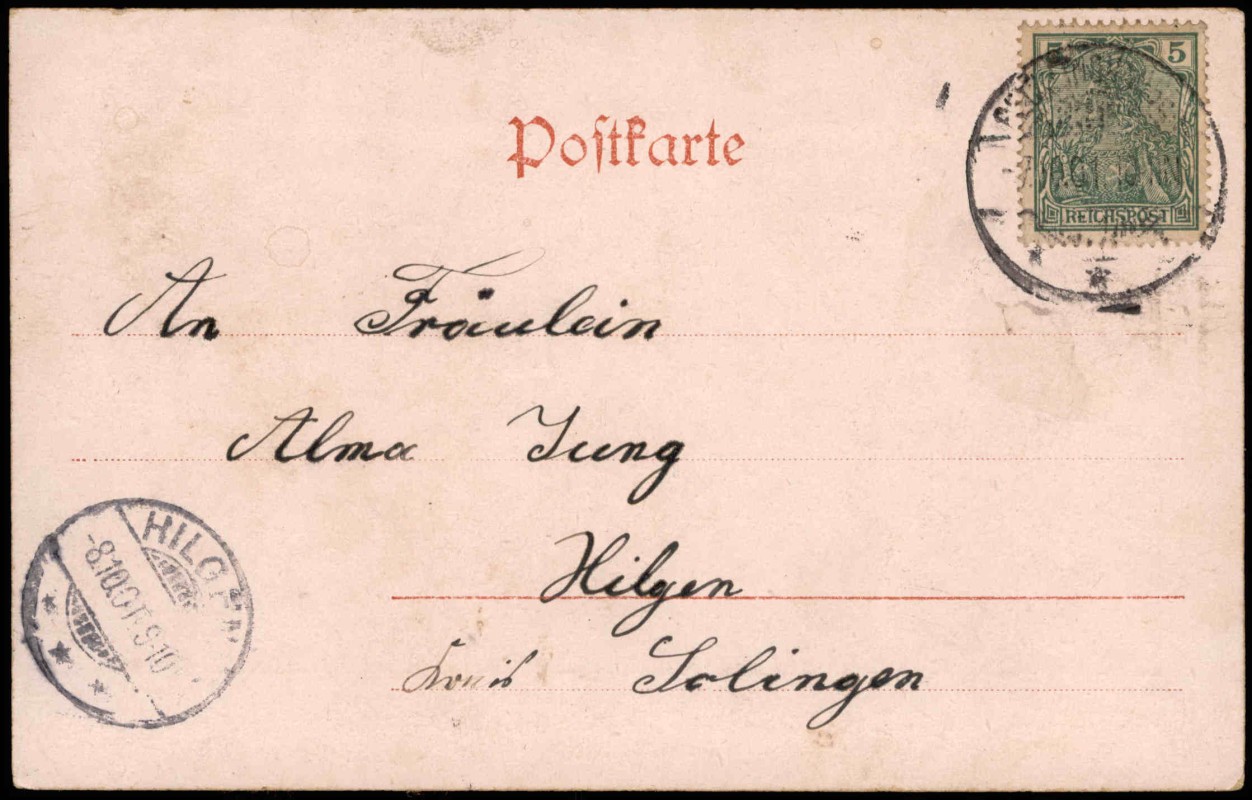 5 5
REICHSPOST
Postkarte
An Fräulein
Alma Jung
Hilgen
Kreis Solingen
HILGEN
-8.10.01.9-10